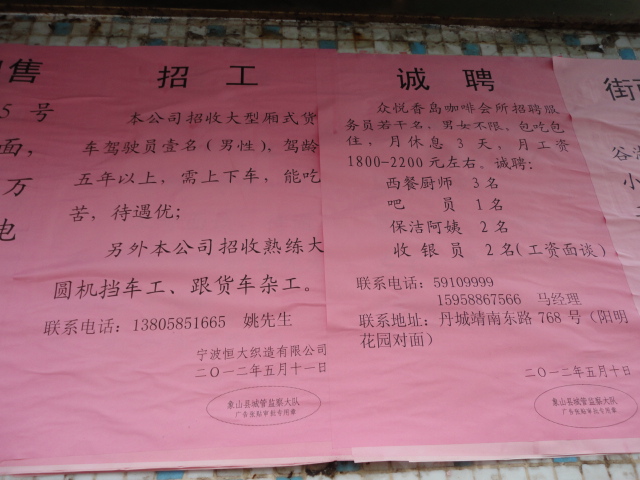 售
5 号
面，
万
电
招 工
本公司招收大型厢式货
车驾驶员壹名（男性），驾龄
五年以上，需上下车，能吃
苦，待遇优；
另外本公司招收熟练大
圆机挡车工、跟货车杂工。
联系电话：13805851665 姚先生
宁波恒大织造有限公司
二〇一二年五月十一日
象山县城管监察大队
广告张贴审批专用章
诚 聘
众悦香岛咖啡会所招聘服
务员若干名，男女不限，包吃包
住，月休息 3 天，月工资
1800-2200 元左右。诚聘：
西餐厨师 3 名
吧 员 1 名
保洁阿姨 2 名
收 银 员 2 名（工资面谈）
联系电话：59109999
15958867566 马经理
联系地址：丹城靖南东路 768 号（阳明
花园对面）
二〇一二年五月十日
象山县城管监察大队
广告张贴审批专用章
街
谷
小